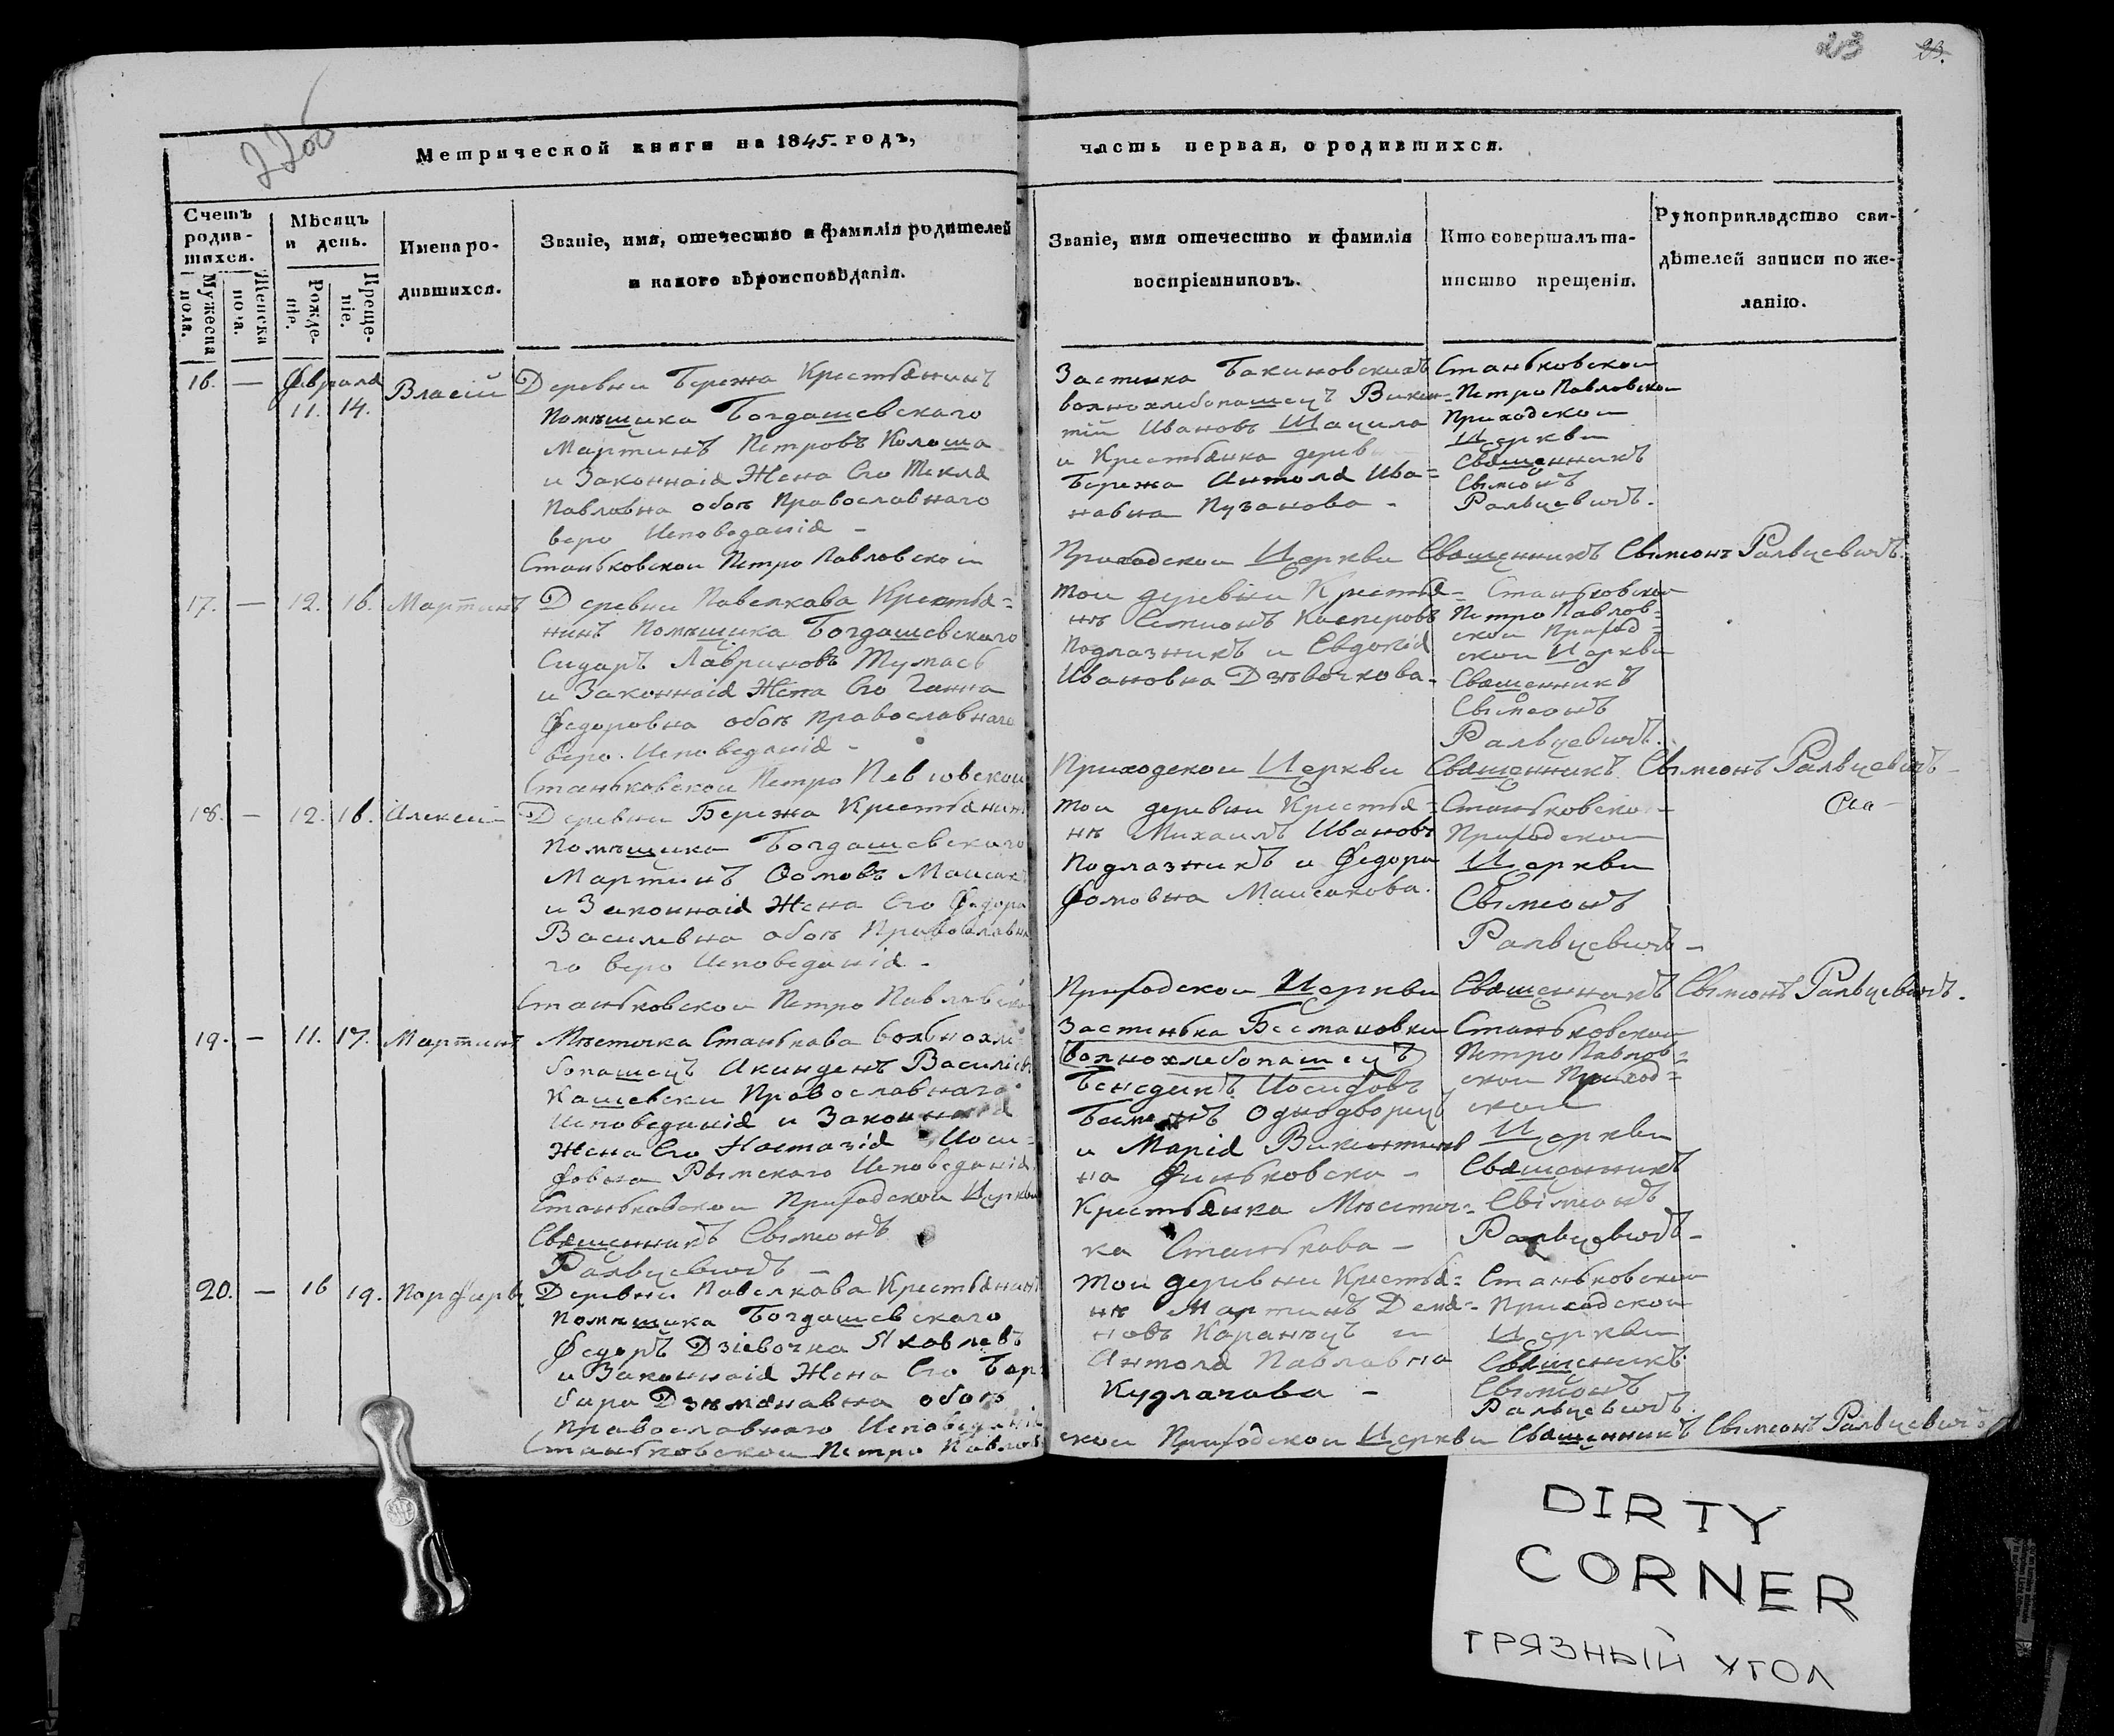 23 23.
220б
Метрической книги на 1845. годъ,
часть первая, о родившихся.
Счетъ родившихся.
Мужеска пола.
Женска пола.
Мѣсяцъ и день.
Рожденіе.
Крещеніе.
Имена родившихся.
Званіе, имя, отечество и фамилія родителей
и какого вѣроисповѣданія.
Званіе, имя отечество и фамилія
воспріемниковъ.
Кто совершалъ та-
инство крещенія.
Рукоприкладство сви-
дѣтелей записи по же-
ланію.
16. — Февраля 11. 14. Власій
Деревни Бережа Крестьянинъ
Помѣщика Богдашевскаго
Мартинъ Петровъ Колоша
и Законная Жена Его Текля
Павловна обоѣ Православнаго
веро Исповеданія -
Застенка Бакиновскихъ
волнохлебопашецъ Викен-
тій Ивановъ Шацила
и Крестьянка дерев
Бережа Антоля Ива=
навна Пузанова -
Станьковской
Петро Павловской
Приходской
Церкви
Священникъ
Сѵмеонъ
Ральцевичъ.
Станьковской Петро Павловской Приходской Церкви Священникъ Сѵмеонъ Ральцевичъ.
17. — 12. 16. Мартинъ
Деревни Павелкава Крестья=
нинъ Помѣщика Богдашевскаго
Сидаръ Лавриновъ Тумась
и Законная Жена Его Ганна
Федоровна обоѣ Православнаго
веро. Исповеданія -
той деревни Крестья-
нѣ Семионъ Касперовъ
Подлазникъ и Евдокія
Ивановна Дзѣвочкова -
Станьковской
Петро Павлов-
ской Приход-
ской Церкви
Священникъ
Сѵмеонъ
Ральцевичъ.
Станьковской Петро Павловской Приходской Церкви Священникъ Сѵмеонъ Ральцевичъ -
18. — 12. 16. Алексей
Деревни Бережа Крестьянинъ
Помѣщика Богдашевскаго
Мартинъ Фомовъ Маисак
и Законная Жена Его Федора
Василевна обоѣ Православна
го веро Исповеданія -
той деревни Крестья=
нѣ Михаилъ Ивановъ
Подлазникъ и Федора
Фомовна Маисакова.
Станьковской
Приходской
Церкви
Сѵмеонъ
Ральцевичъ -
Станьковской Петро Павловско Приходской Церкви Священникъ Сѵмеонъ Ральцевичъ.
19. — 11. 17. Мартинъ
Мѣстечка Станькава вольнохле
бопашецъ Акинденъ Василіевъ
Кашевски Православнаго
Исповеданія и Законная
Жена Его Настазія Иоси=
фовна Рымскаго Исповеданія
Станьковской Приходской Церкви
Священникъ Сѵмеонъ
Ральцевичъ -
Застенька Бесмановки
волнохлебопашецъ
Бенедикъ Иосифовъ
Однодворецъ
и Марія Викентиев
на Финьковска -
Крестьянка Мѣстеч=
ка Станькава -
Станьковской
Петро Павлов=
ской Приход=
ской
Церкви
Священникъ
Сѵмеонъ
Ральцевичъ -
20. — 16 19. Порфирь
Деревни Павелкава Крестьянинъ
Помѣщика Богдашевскаго
Федоръ Дзіевочка Яковлевъ
и Законная Жена Его Бар
бара Дземянавна обоѣ
Православнаго Исповеданія
той деревни Крестья=
нѣ Мартинъ Демя=
новъ Каранецъ и
Антоля Павлавна
Кудлачава -
Станьковской
Приходской
Церкви
Священникъ
Сѵмеонъ
Ральцевичъ.
Станьковской Петро Павловской Приходской Церкви Священникъ Сѵмеонъ Ральцевичъ
DIRTY
CORNER
ГРЯЗНЫЙ УГОЛ